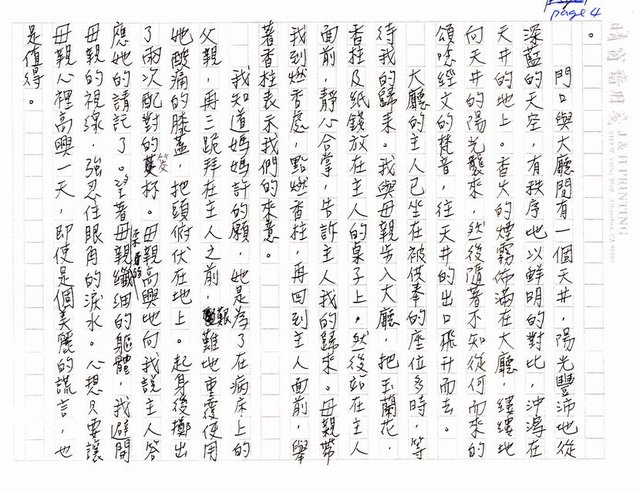 page 4
晴窗夢用
J & H PRINTING
。
門口與大廳間有一個天井，陽光豐沛地從
深藍的天空，有秩序地以鮮明的對比，沖瀉在
天井的地上。香火的煙霧佈滿在大廳 縷縷地
向天井的陽光襲來，然後隨著不知從何而來的
頌唸經文的梵音，往天井的出口飛升而去。
大廳的主人已坐在被供奉的座位多時，等
待我的歸來。我與母親步入大廳，把玉蘭花，
香拄及紙錢放在主人的桌子上。然後站在主人
面前，靜心合掌，告訴主人我的歸來。母親帶
我到燃香處，點燃香拄，再回到主人面前，舉
著香拄表示我們的來意。
我知道媽媽許的願，她是為了在病床上的
父親，再三跪拜在主人之前，艱難地重複使用
她酸痛的膝蓋，把頭俯伏在地上。起身後擲出
了兩次配對的筊杯。母親高興地向我說主人答
應她的請託了。望著母親柔弱的纖細的軀體，我僻開
母親的視線，強忍住眼角的淚水。心想只要讓
母親心裡高興一天，即使是個美麗的謊言，也
是值得。